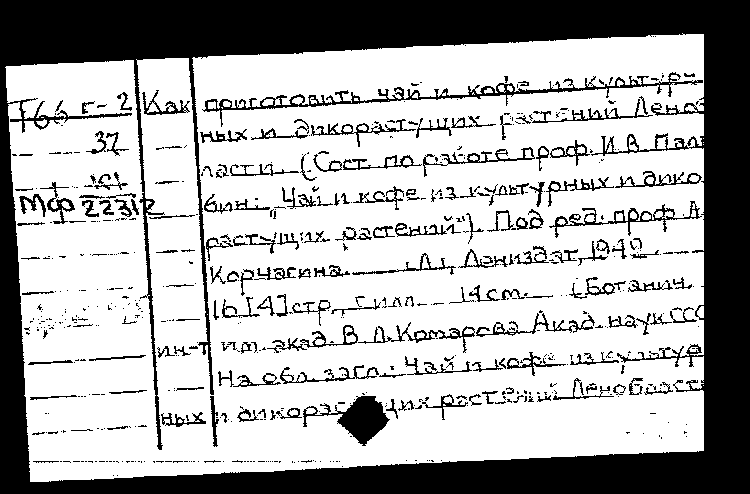 Т66 г-2 Как приготовить чай и кофе из культур-
37 ных и дикорастущих растений Леноб
ласти. (Сост. по работе проф. И.В. Пали
МФ 22312 бин: „Чай и кофе из культурных и дико
растущих растений"). Под ред. проф А.
Корчагина. Л., Лениздат, 1942.
16 [4] стр., с илл. 14 см. (Ботанич.
ин-т им. акад. В.Л. Комарова Акад. наук ССС
На обл. загл.: Чай и кофе из культур
ных и дикорас щих растений Ленобласти